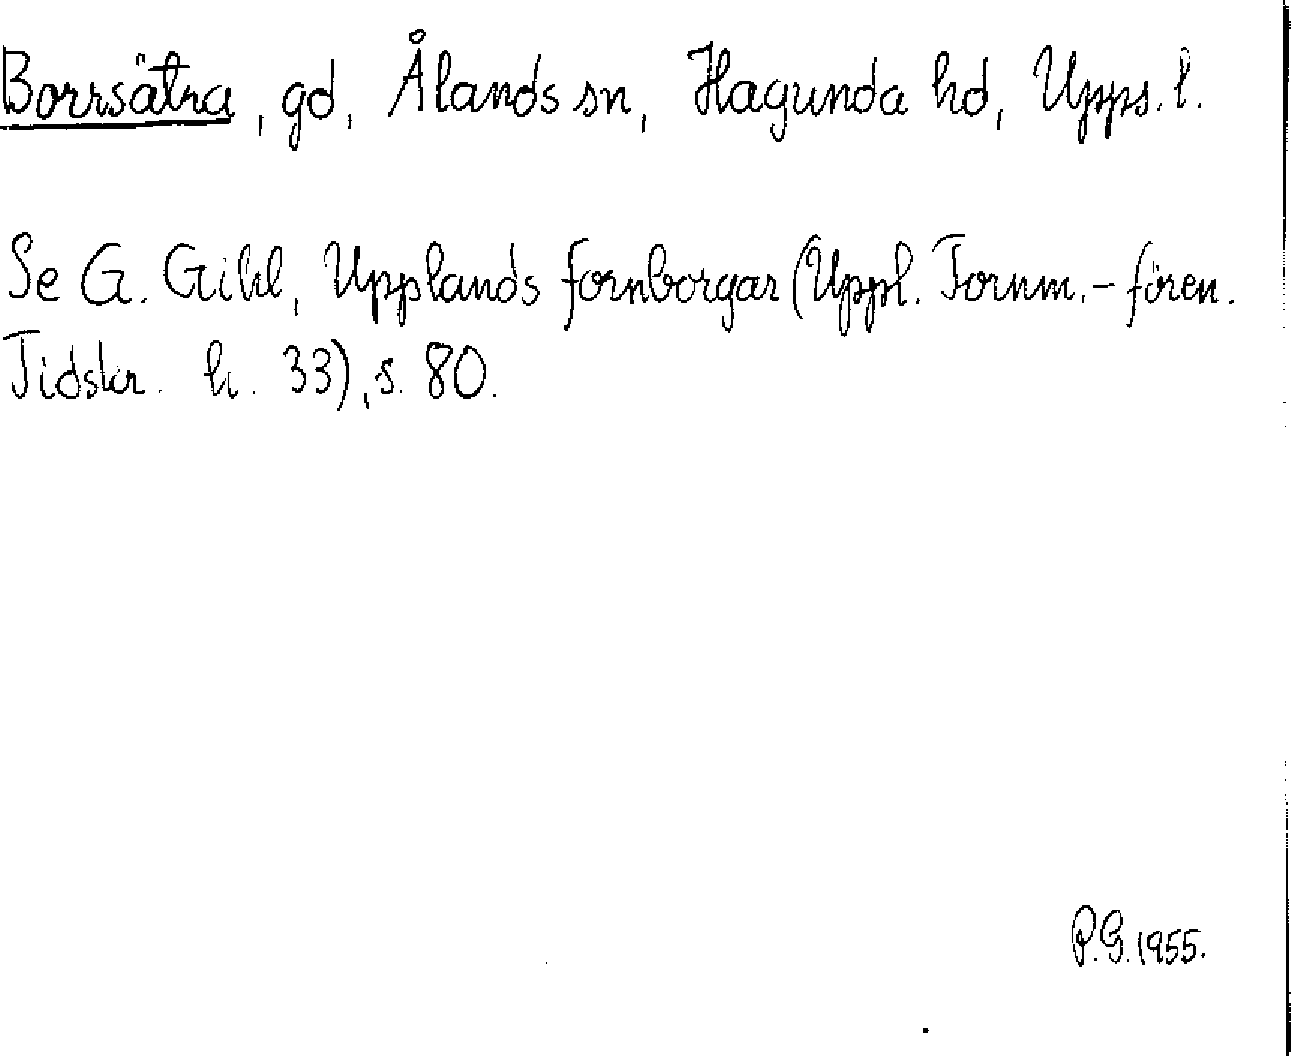 Borrsätra, gd, Ålands sn, Hagunda hd, Upps. l.
Se G. Gihl, Upplands fornborgar (Uppl. Fornm.-fören.
Tidskr. h. 33), s. 80.
P.G. 1955.